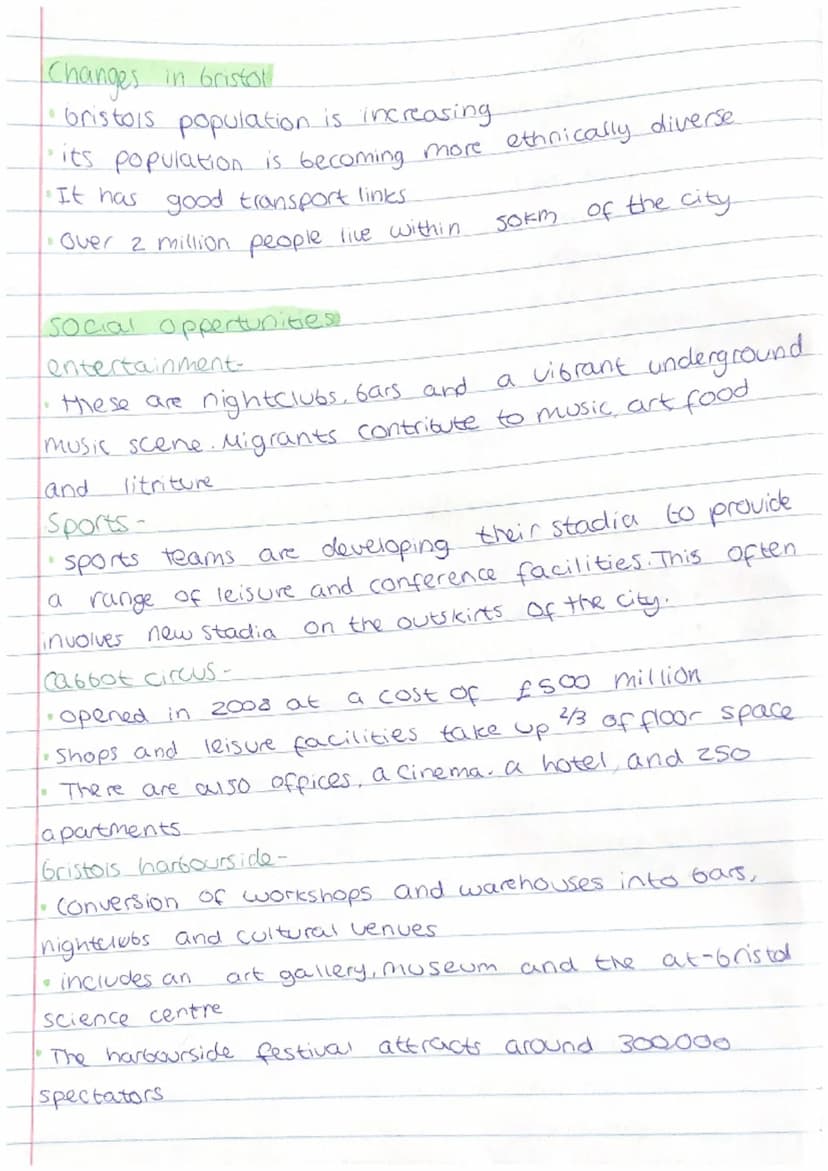 Changes in bristol
• bristols population is increasing
• its population is becoming more ethnically diverse
• It has good transport links
• Over 2 million people live within 50km of the city
social oppertunities
entertainment-
• these are nightclubs, bars and a vibrant underground
music scene. Migrants contribute to music, art food
and litriture
Sports-
• sports teams are developing their stadia to provide
a range of leisure and conference facilities. This often
involves new stadia on the outskirts of the city.
Cabbot circus-
• opened in 2008 at a cost of £500 million
• Shops and leisure facilities take up 2/3 of floor space
• There are also offices, a cinema. a hotel, and 250
apartments
bristols harbourside-
• conversion of workshops and warehouses into bars,
nightclubs and cultural venues
• includes an art gallery, museum and the at-bristol
science centre
• The harbourside festival attracts around 300,000
spectators